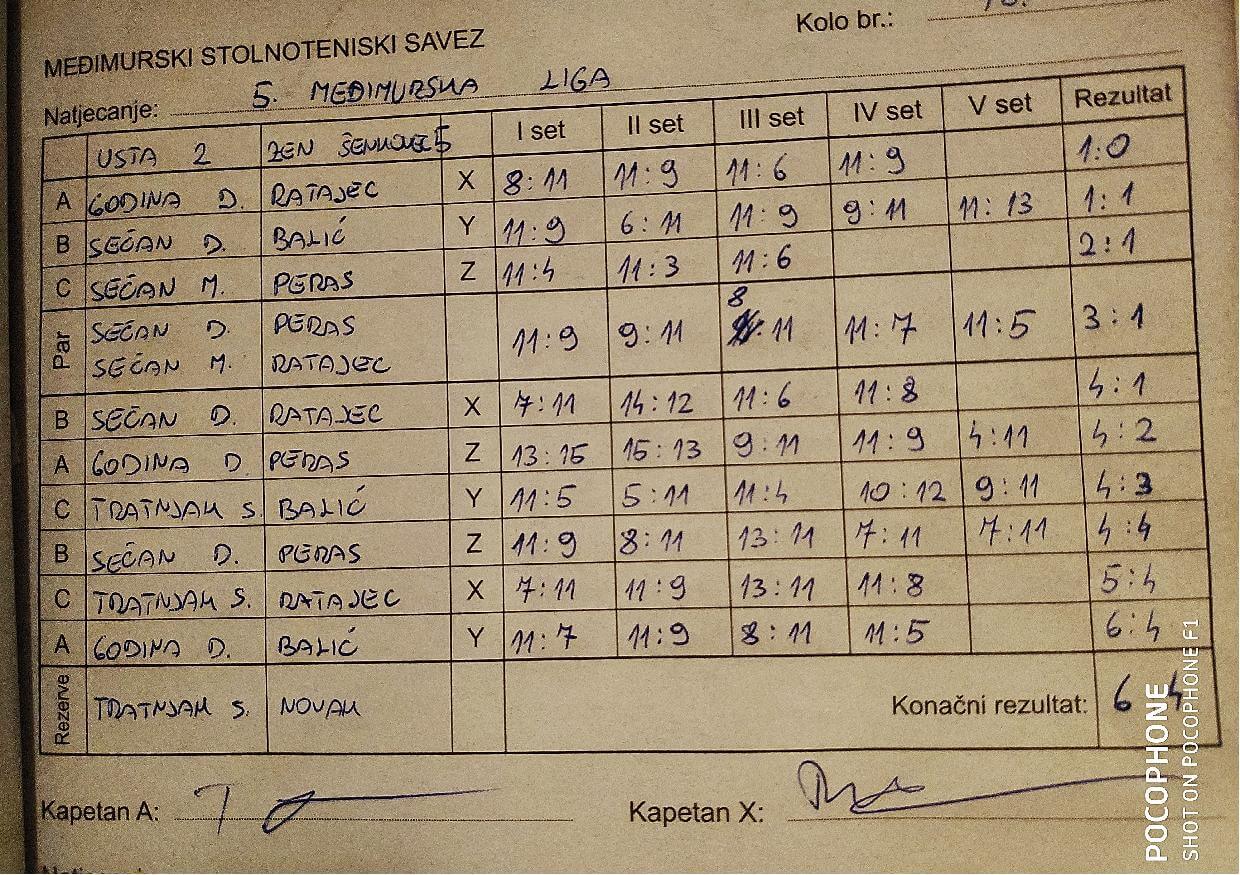 Kolo br.:
MEĐIMURSKI STOLNOTENISKI SAVEZ
Natjecanje: 5. MEĐIMURSKA LIGA
USTA 2 ZEN ŠENKOVEC 5 I set II set III set IV set V set Rezultat
A GODINA D. RATAJEC X 8:11 11:9 11:6 11:9 1:0
B SEČAN D. BALIĆ Y 11:9 6:11 11:9 9:11 11:13 1:1
C SEČAN M. PERAS Z 11:4 11:3 11:6 2:1
Par SEČAN D. PERAS 11:9 9:11 8:11 11:7 11:5 3:1
SEČAN M. RATAJEC
B SEČAN D. RATAJEC X 7:11 14:12 11:6 11:8 4:1
A GODINA D PERAS Z 13:15 15:13 9:11 11:9 4:11 4:2
C TRATNJAK S. BALIĆ Y 11:5 5:11 11:4 10:12 9:11 4:3
B SEČAN D. PERAS Z 11:9 8:11 13:11 7:11 7:11 4:4
C TRATNJAK S. RATAJEC X 7:11 11:9 13:11 11:8 5:4
A GODINA D. BALIĆ Y 11:7 11:9 8:11 11:5 6:4
Rezerve TRATNJAK S. NOVAK Konačni rezultat: 6 4
Kapetan A: Kapetan X:
POCOPHONE
SHOT ON POCOPHONE F1